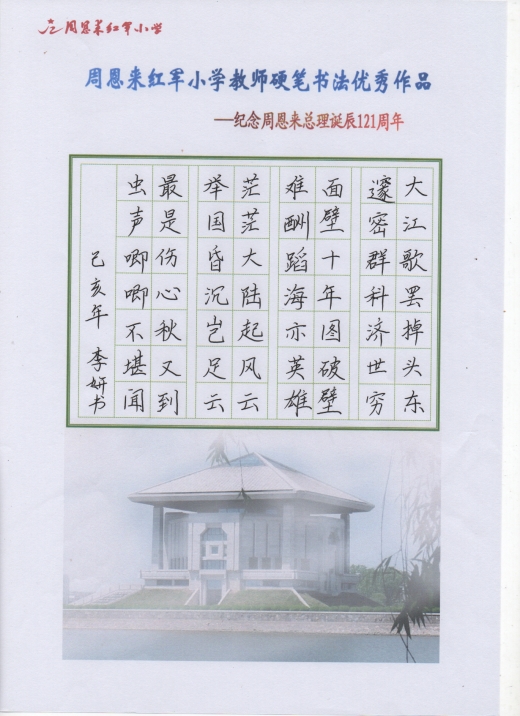 周恩来红军小学
周恩来红军小学教师硬笔书法优秀作品
—纪念周恩来总理诞辰121周年
大江歌罢掉头东
邃密群科济世穷
面壁十年图破壁
难酬蹈海亦英雄
茫茫大陆起风云
举国昏沉岂足云
最是伤心秋又到
虫声唧唧不堪闻
己亥年 李妍书